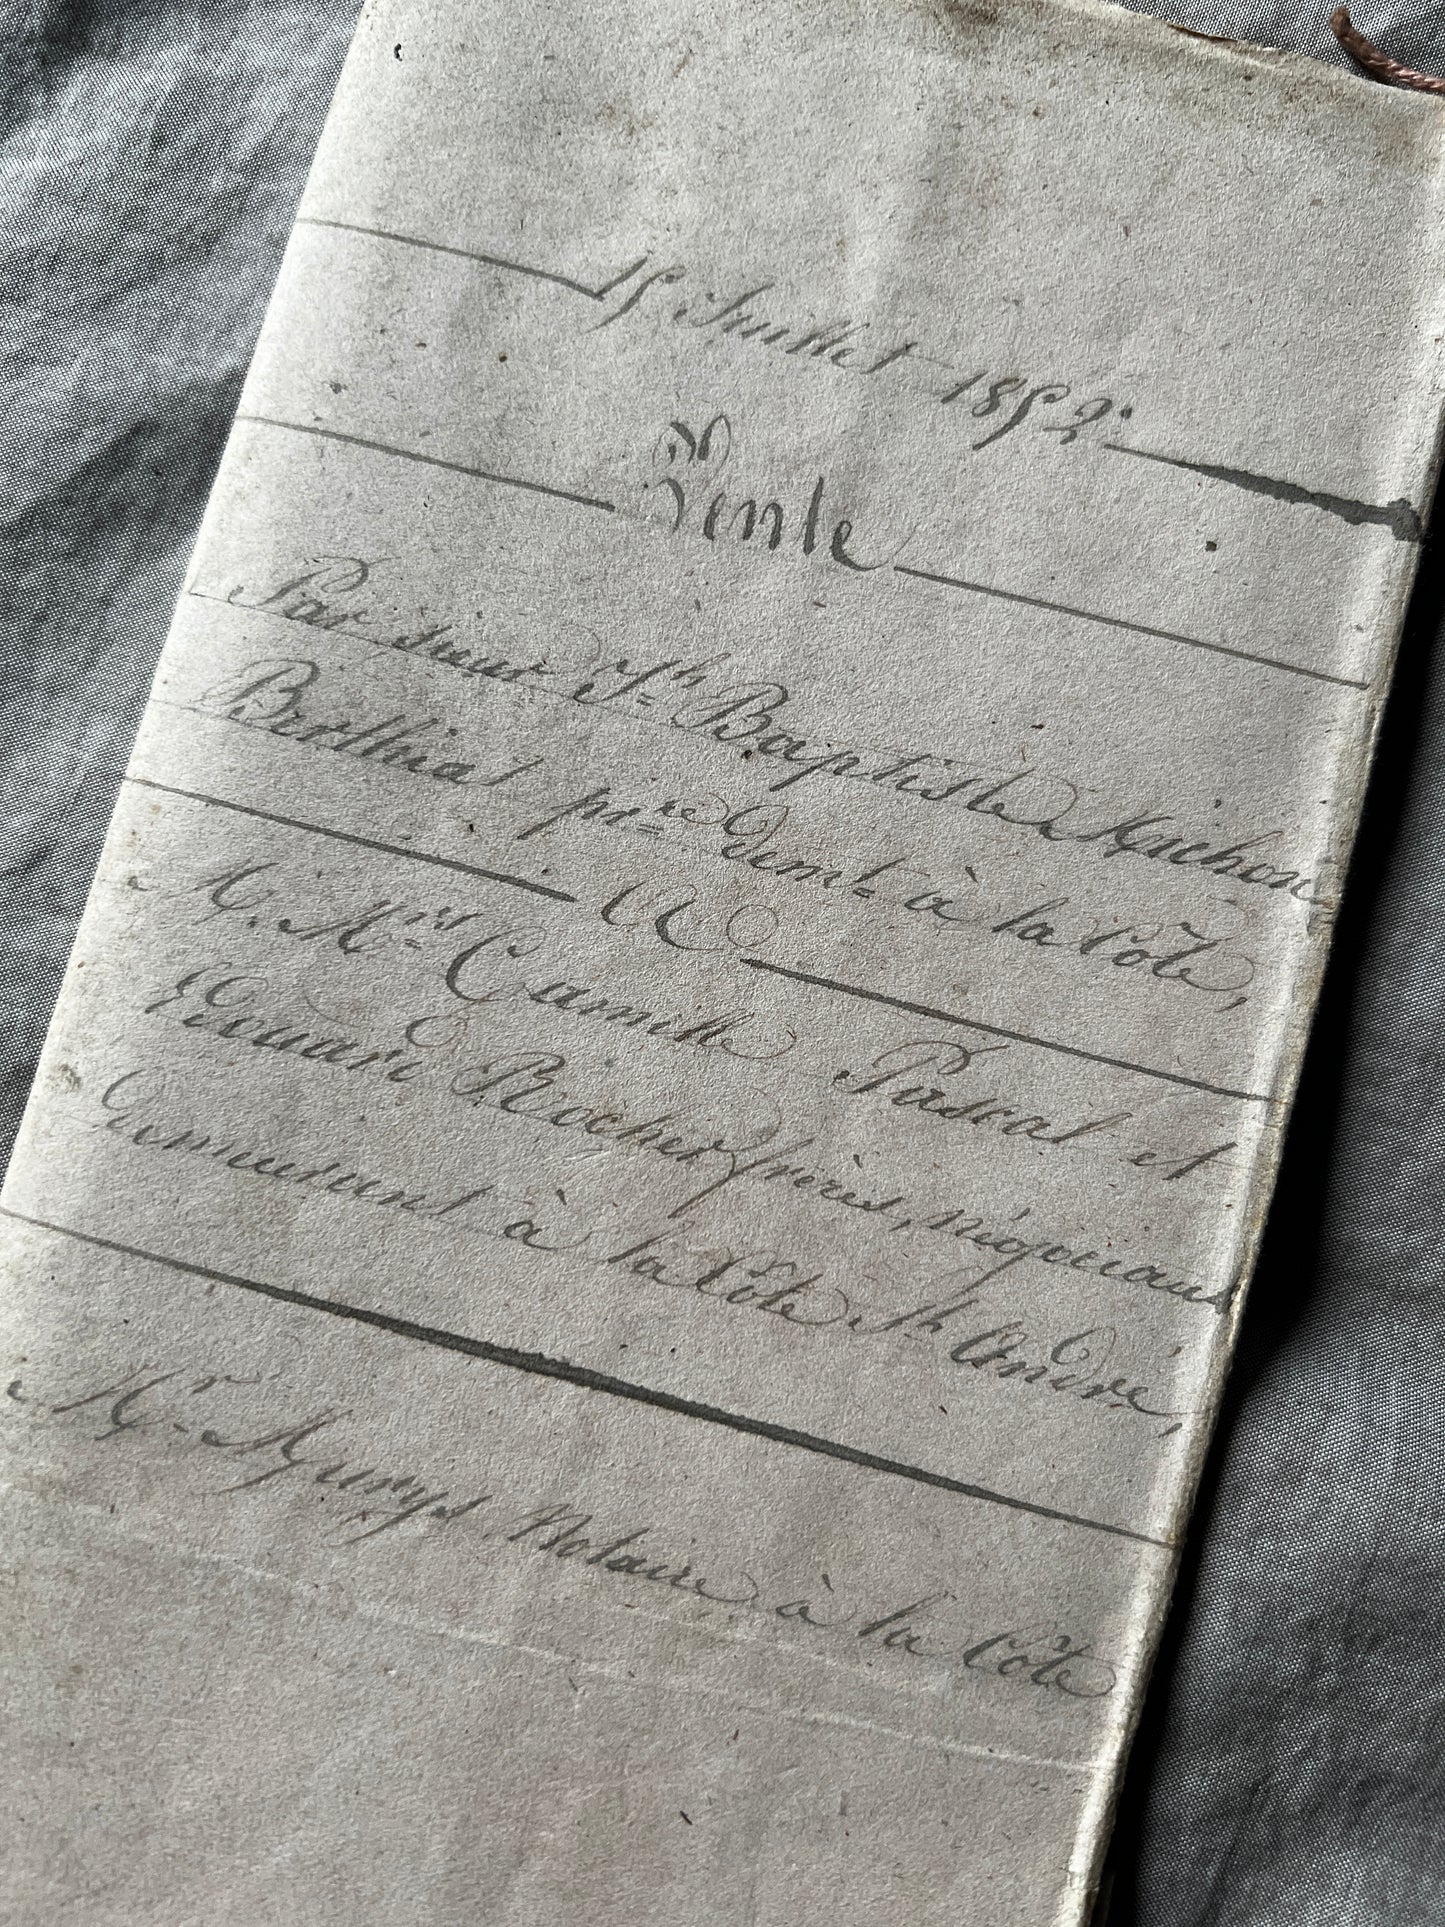 15 Juillet 1852.
Vente
Par sieur Jh Baptiste Michon
Berthiat pr.re demt à la Côte,
A
M. Mrs Camille Pascal et
Edouard Rocher frères, négociants
Demeurant à la Côte St André,
Mr notaire à la Côte